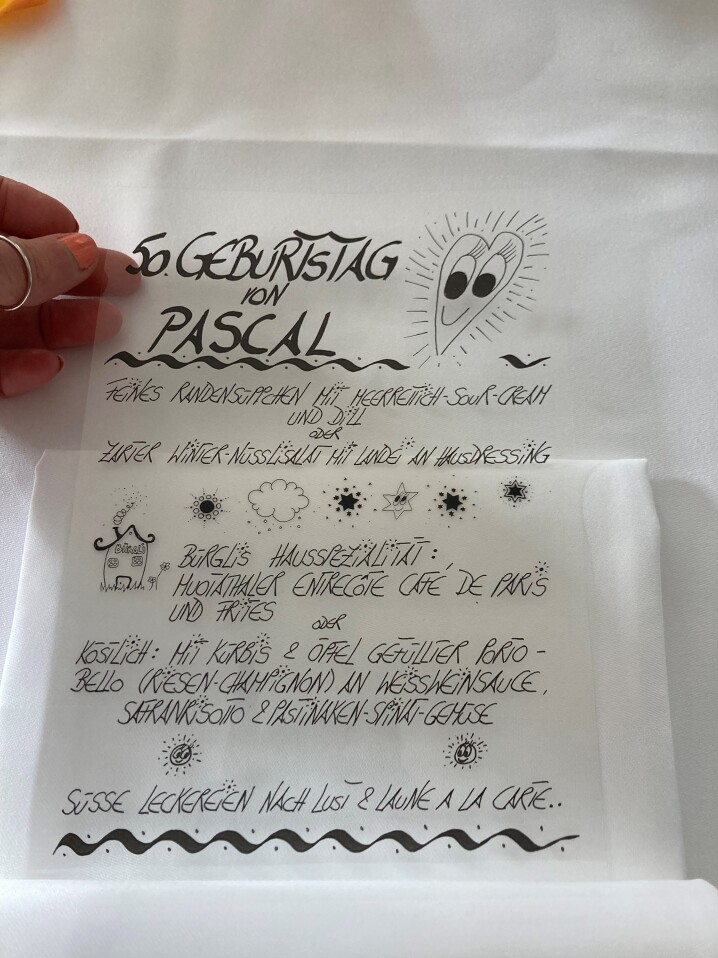 50. GEBURTSTAG
VON
PASCAL
FEINES RANDENSÜPPCHEN MIT MEERRETTICH-SOUR-CREAM
UND DILL
ODER
ZARTER WINTER-NÜSSLISALAT MIT LANDEI AN HAUSDRESSING
BÜRGLI
BÜRGLIS HAUSSPEZIALITÄT:,
MUOTATHALER ENTRECÔTE CAFE DE PARIS
UND FRITES
ODER
KÖSTLICH: MIT KÜRBIS & ÖPFEL GEFÜLLTER PORTO-
BELLO (RIESEN-CHAMPIGNON) AN WEISSWEINSAUCE,
SAFRANRISOTTO & PASTINAKEN-SPINAT-GEMÜSE
SÜSSE LECKEREIEN NACH LUST & LAUNE A LA CARTE..